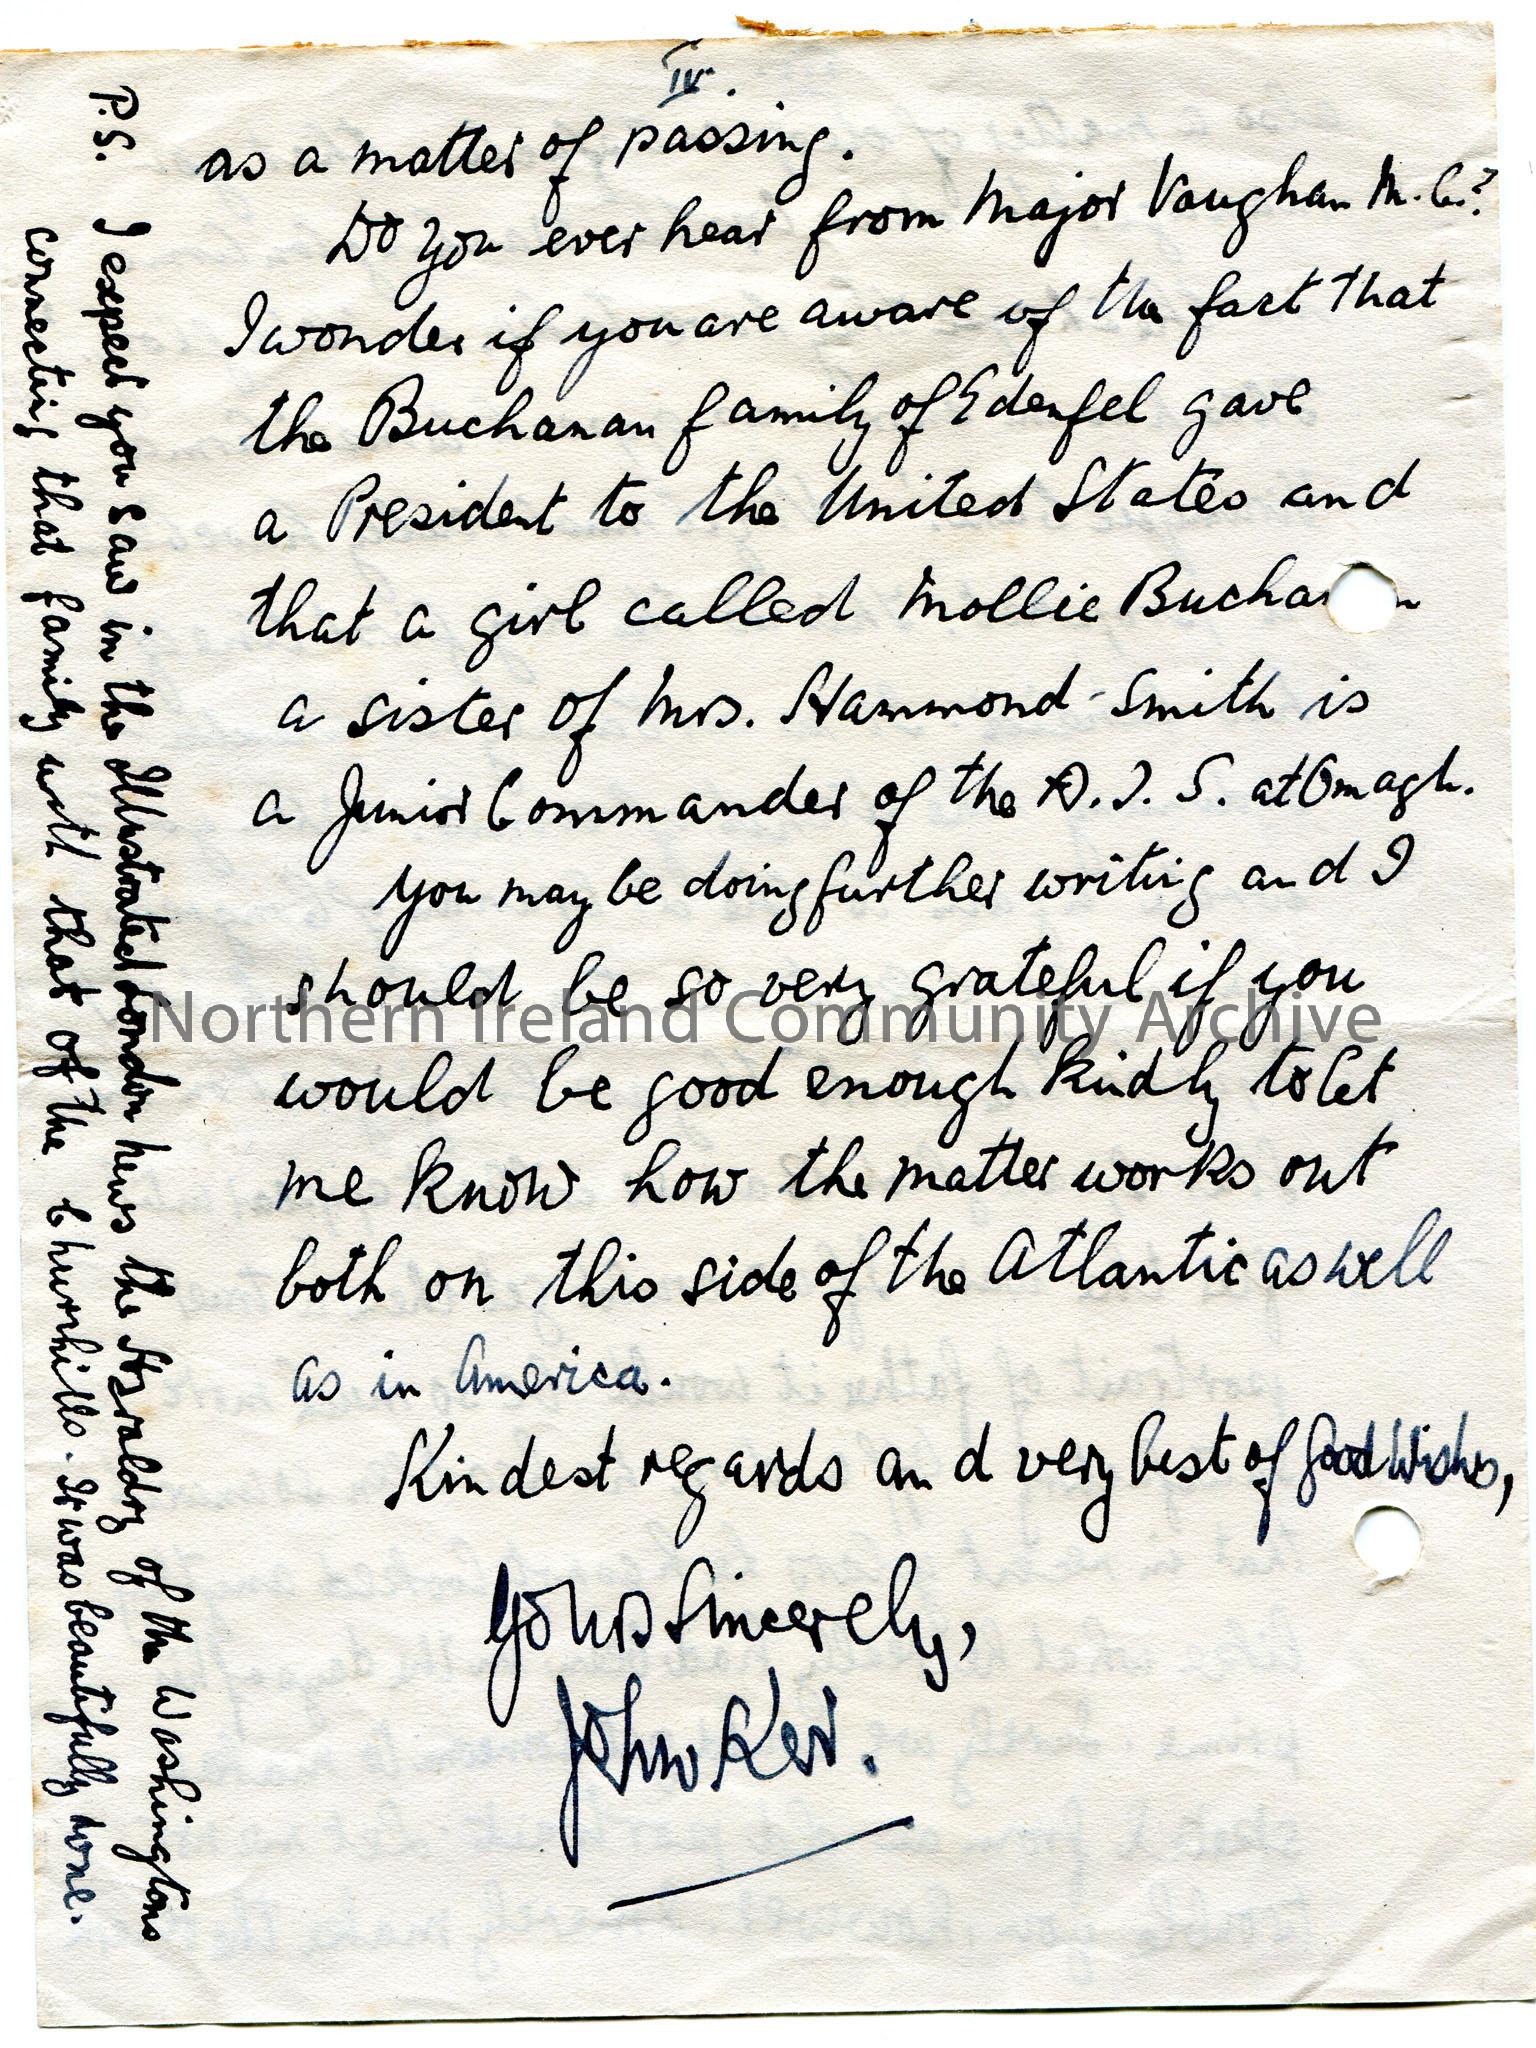 IV.
as a matter of passing.
Do you ever hear from Major Vaughan M.C.?
I wonder if you are aware of the fact that
the Buchanan family of Edenfel gave
a President to the United States and
that a girl called Mollie Buchanan
a sister of Mrs. Hammond-Smith is
a Junior Commander of the A.T.S. at Omagh.
You may be doing further writing and I
should be so very grateful if you
Northern Ireland Community Archive
would be good enough kindly to let
me know how the matter works out
both on this side of the Atlantic as well
as in America.
Kindest regards and very best of Good Wishes,
Yours Sincerely,
John Ker.
P.S. I expect you saw in the Illustrated London News the Heraldry of the Washingtons
connecting that family with that of the Churchills. It was beautifully done.